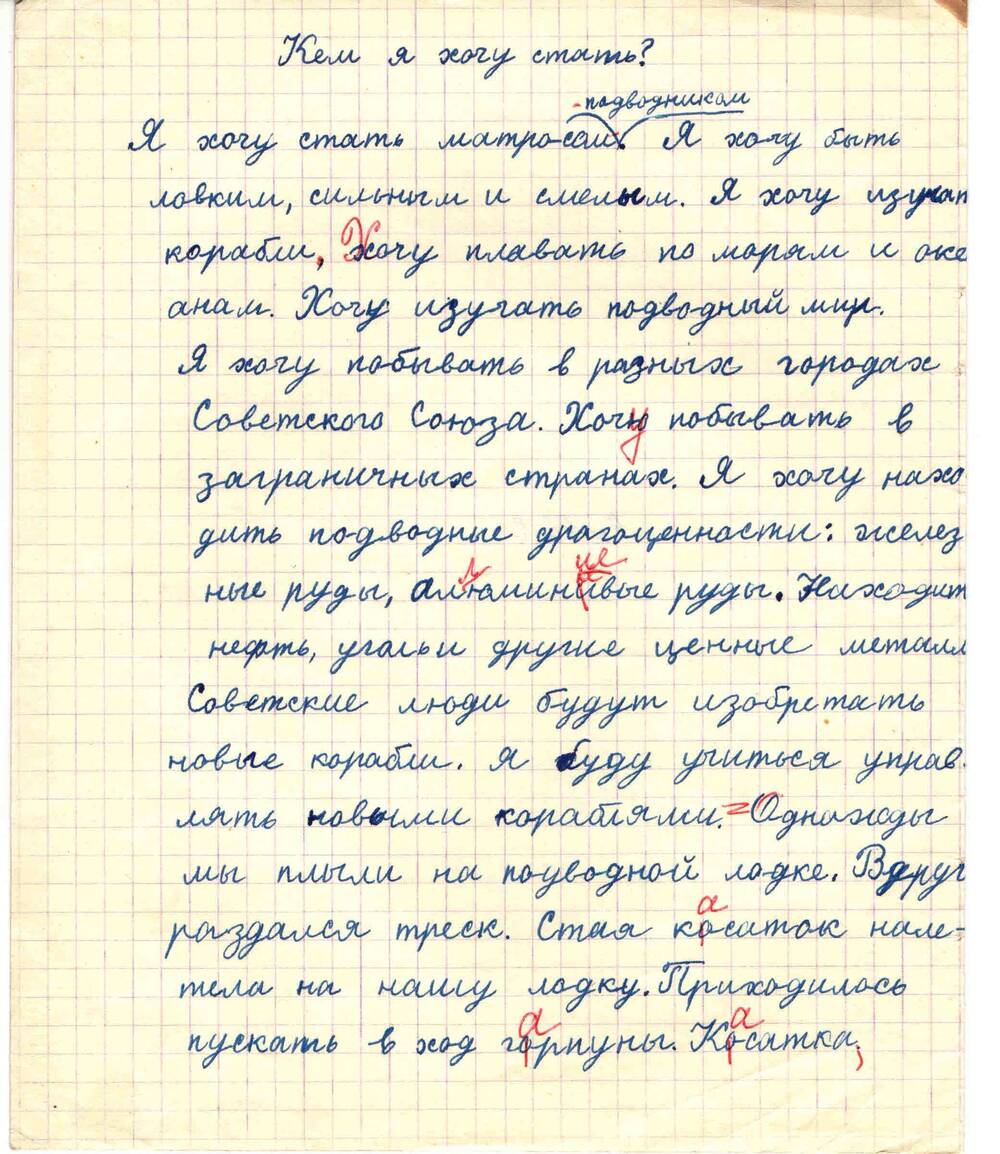 Кем я хочу стать?
-подводником
Я хочу стать матросом. Я хочу быть
ловким, сильным и смелым. Я хочу изучат
корабли, Хочу плавать по морям и оке
анам. Хочу изучать подводный мир.
Я хочу побывать в разных городах
Советского Союза. Хочу побывать в
заграничных странах. Я хочу нахо
дить подводные драгоценности: желез
ные руды, алюминиевые руды. Находит
нефть, уголь и другие ценные металл
Советские люди будут изобретать
новые корабли. Я буду учиться управ
лять новыми кораблями. Однажды
мы плыли на подводной лодке. Вдруг
раздался треск. Стая касаток нале-
тела на нашу лодку. Приходилось
пускать в ход гарпуны. Касатка,